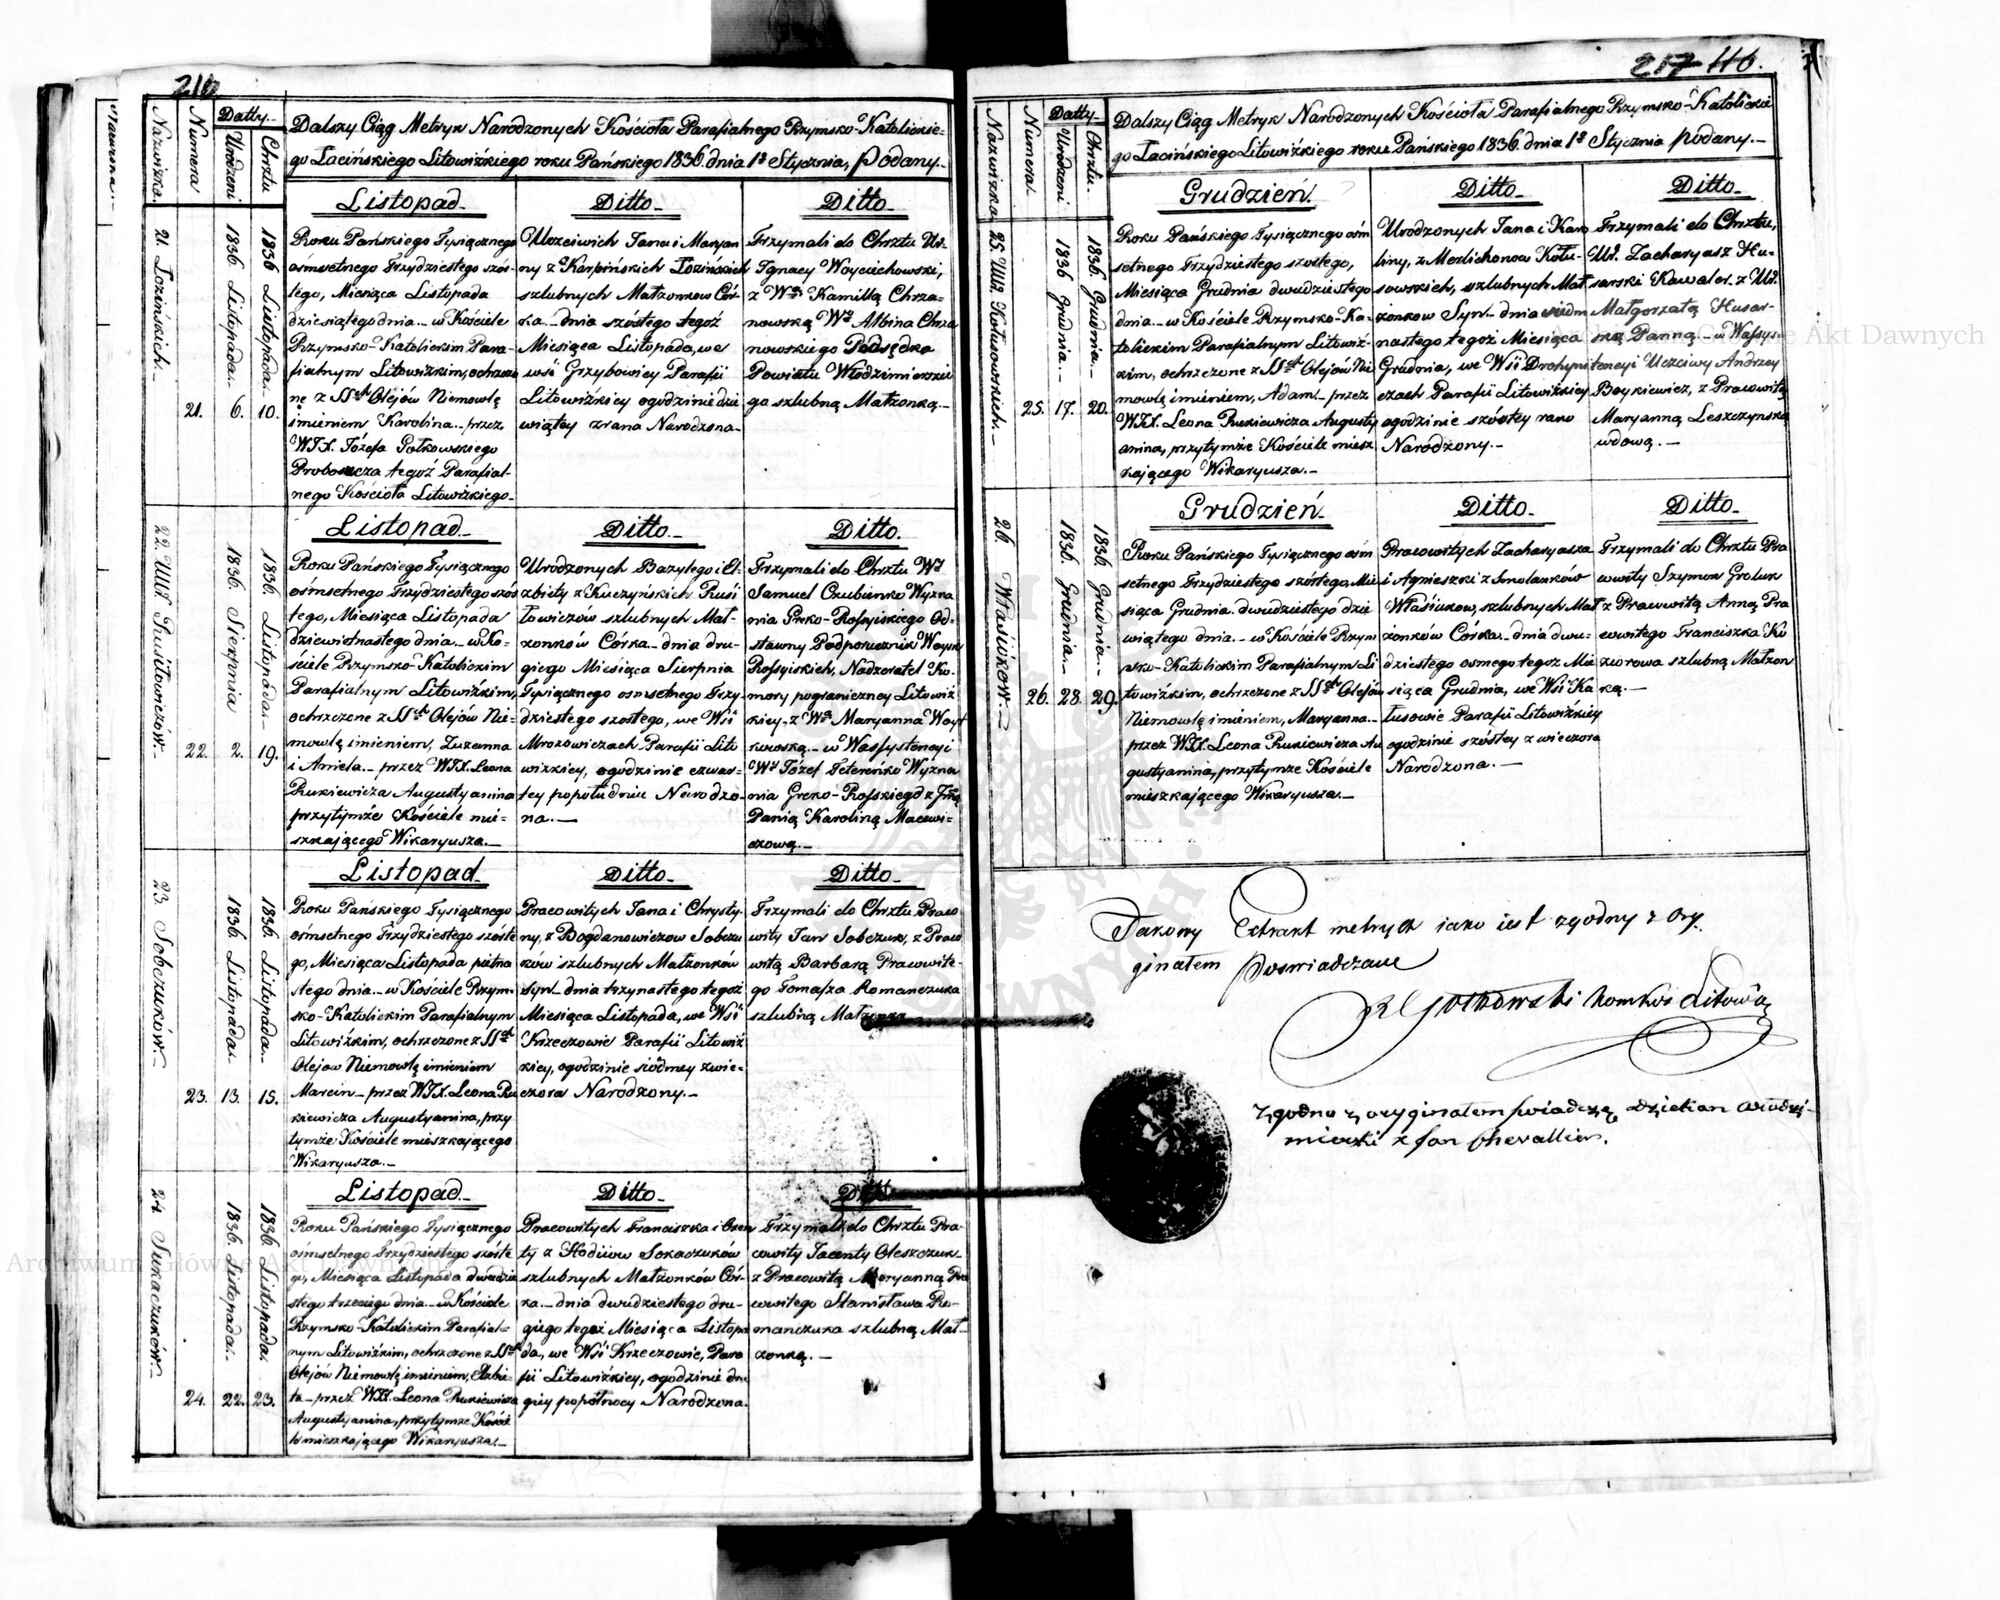 216
Nazwiska.
Numera
Datty.
Urodzeni
Chrztu
Dalszy Ciąg Metryk Narodzonych Kościoła Parafialnego Rzymsko-Katolickie-
go Łacińskiego Litowizkiego roku Pańskiego 1836. dnia 1º Stycznia, Podany.
21. Łozińskich.
21.
1836. Listopada.
6.
1836 Listopada.
10.
Listopad.
Roku Pańskiego Tysiącznego
ośmsetnego Trzydziestego szós-
tego, Miesiąca Listopada
dziesiątego dnia w Kościele
Rzymsko-Katolickim Para-
fialnym Litowizkim, ochrzczo
ne z SStch Olejów Niemowlę
imieniem Karolina. przez
WJX. Józefa Gołkowskiego
Proboszcza tegoż Parafial-
nego Kościoła Litowizkiego.
Ditto.
Uczciwych Jana i Maryan
ny z Karpińskich Łozińskich
szlubnych Małżonków Cór-
ka. dnia szóstego tegoż
Miesiąca Listopada, we
wsi Grzybowicy Parafii
Litowizkiey o godzinie dzie
wiątey zrana Narodzona.
Ditto.
Trzymali do Chrztu Ur.
Ignacy Woyciechowski,
z Wą Kamillą Chrza-
nowską Wo Albina Chrza
nowskiego Podsędka
Powiatu Włodzimierskie
go szlubną Małżonką.
22. Ur. Rusiłowiczów.
22.
1836. Sierpnia
2.
1836. Listopada.
19.
Listopad.
Roku Pańskiego Tysiącznego
ośmsetnego Trzydziestego szós
tego, Miesiąca Listopada
dziewiętnastego dnia. w Ko-
ściele Rzymsko-Katolickim
Parafialnym Litowizkim,
ochrzczone z SStch Olejów Nie-
mowlę imieniem, Zuzanna
i Aniela. przez WJX. Leona
Rukiewicza Augustyanina
przytymże Kościele mie-
szkającego Wikaryusza.
Ditto.
Urodzonych Bazylego i El
zbiety z Kuczyńskich Rusi
łowiczów szlubnych Mał-
żonków Córka. dnia dru-
giego Miesiąca Sierpnia
Tysiącznego osmsetnego Trzy-
dziestego szóstego, we Wsi
Mrozowiczach Parafii Lito
wizkiey, o godzinie czwar-
tey popołudniu Narodzo-
na.
Ditto.
Trzymali do Chrztu Wy
Samuel Czubienko Wyzna
nia Greko-Rossyiskiego Od-
stawny Podporucznik Woysk
Rossyiskich, Nadzoratel Ko-
mory pograniczney Litowiz
kiey, z Wą Maryanna Woyt
kowską. w Wassystencyi
Wy Józef Tetereńko Wyzna
nia Greko-Rosskiego z Jmą
Panią Karoliną Macewi-
czową.
23. Sobczuków.
23.
1836. Listopada.
13.
1836. Listopada.
15.
Listopad.
Roku Pańskiego Tysiącznego
ośmsetnego Trzydziestego szóste
go, Miesiąca Listopada piętna
stego dnia. w Kościele Rzym-
sko-Katolickim Parafialnym
Litowizkim, ochrzczone z SStch
Olejow Niemowlę imieniem
Marcin przez WJX. Leona Ru
kiewicza Augustyanina, przy
tymże Kościele mieszkającego
Wikaryusza.
Ditto.
Pracowitych Jana i Chrysty-
ny, z Bogdanowiczow Sobczu
ków szlubnych Małżonków
Syn dnia trzynastego tegoż
Miesiąca Listopada, we Wsi
Krzeczowie Parafii Litowiz
kiey, o godzinie siódmey zwie-
czora Narodzony.
Ditto.
Trzymali do Chrztu Praco
wity Jan Sobczuk, z Praco
witą Barbarą Pracowite-
go Tomasza Romanczuka
szlubną Małżonką
24. Sukaczuków.
24.
1836. Listopada.
22.
1836. Listopada.
23.
Listopad.
Roku Pańskiego Tysiącznego
ośmsetnego Trzydziestego szóste
go, Miesiąca Listopada dwudzie
stego trzeciego dnia w Kościele
Rzymsko-Katolickim Parafial-
nym Litowizkim, ochrzczone z SStch
Olejów Niemowlę imieniem, Elzbie
ta przez WJX. Leona Rukiewicza
Augustyanina, przytymże Koście
le mieszkającego Wikaryusza.
Ditto.
Pracowitych Franciszka i
ty z Sokaczuków
szlubnych Małżonków Cór-
ka. dnia dwudziestego dru-
giego tegoż Miesiąca Listopa
da, we Wsi Krzeczowie, Para
fii Litowizkiey, o godzinie dru
giey popołnocy Narodzona.
Ditto
Trzymali do Chrztu Pra-
cowity Jacenty Oleszczuk
z Pracowitą Maryanną Pra
cowitego Stanisława Ro-
manczuka szlubną Mał-
żonką.
217 46.
Nazwiska
Numera
Datty
Urodzeni
Chrztu.
Dalszy Ciąg Metryk Narodzonych Kościoła Parafialnego Rzymsko-Katolickie
go Łacińskiego Litowizkiego roku Pańskiego 1836. dnia 1º Stycznia podany.
25. Ur. Kołusowskich.
25.
1836 Grudnia.
17.
1836. Grudnia.
20.
Grudzień.
Roku Pańskiego Tysiącznego ośm
setnego Trzydziestego szóstego,
Miesiąca Grudnia dwudziestego
dnia. w Kościele Rzymsko-Ka-
tolickim Parafialnym Litowiz-
kim, ochrzczone z SStch Olejów Nie
mowlę imieniem, Adam. przez
WJX. Leona Rukiewicza Augusty
anina, przytymże Kościele miesz
kającego Wikaryusza.
Ditto.
Urodzonych Jana i Karo
liny, z Kołu-
sowskich, szlubnych Mał
żonkow Syn dnia siedm
nastego tegoż Miesiąca
Grudnia, we Wsi
czach Parafii Litowizkiey
o godzinie szóstey rano
Narodzony.
Ditto.
Trzymali do Chrztu,
Ur. Zacharyasz Hu-
sarski Kawaler. z Ur.
Małgorzatą Husar-
ską Panną w Wassys-
tencyi Uczciwy Andrzey
Boykiewicz, z Pracowitą
Maryanną Leszczynską
wdową.
26. Własiuków.
26.
1836. Grudnia.
28.
1836. Grudnia.
29.
Grudzień.
Roku Pańskiego Tysiącznego ośm
setnego Trzydziestego szóstego, Mie
siąca Grudnia. dwudziestego dzie
wiątego dnia. w Kościele Rzym
sko-Katolickim Parafialnym Li
towizkim, ochrzczone z SStch Olejów
Niemowlę imieniem, Maryanna.
przez WJX. Leona Rukiewicza Au
gustyanina, przytymże Kościele
mieszkającego Wikaryusza.
Ditto.
Pracowitych Zacharyasza
i Agnieszki z Smolanków
Własiukow, szlubnych Mał
żonków Córka. dnia dwu-
dziestego osmego tegoż Mie
siąca Grudnia, we Wsi Ka
łusowie Parafii Litowizkiey
o godzinie szóstey z wieczora
Narodzona.
Ditto.
Trzymali do Chrztu Pra
cowity Szymon Groluk
z Pracowitą Anną Pra
cowitego Franciszka Ko
ziorowa szlubną Małżon
ką.
Takowy Extrakt metryk jako jest zgodny z ory-
ginałem Poswiadczam
X Gołkowski
Zgodno z oryginałem swiadczę dziekan włodzi-
mierski X Jan Chevallier.
Archiwum Główne Akt Dawnych
Archiwum Główne Akt Dawnych